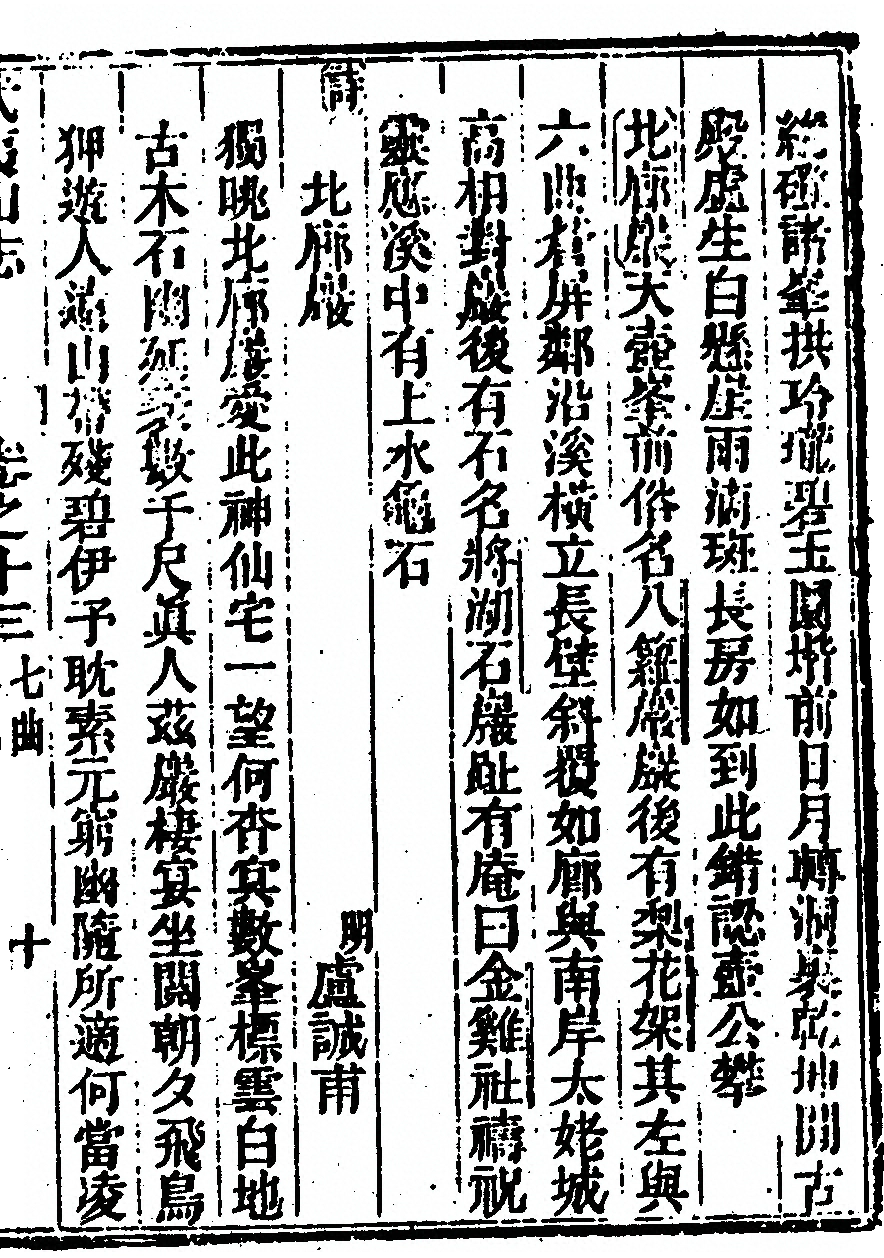 絶磴諸峯拱玲瓏碧玉圜堦前日月轉洞裏乾坤開古
殿虛生白懸崖雨滴斑長房如到此錯認壺公攀
北廊巖天壺峯前俗名八雞巖巖後有梨花架其左與
六曲屏鄰沿溪橫立長壁斜擐如廊與南岸太姥城
高相對巖後有石名將湖石巖趾有庵曰金雞社禱祝
靈應溪中有上水龜石
詩
北廊巖
明盧誠甫
獨眺北廊巖愛此神仙宅一望何杳冥數峯標雲白地
古木石幽列數千尺眞人茲巖棲宴坐閱朝夕飛鳥
狎遊人山帶殘碧伊予耽素元窮幽隨所適何當凌
武夷山志
卷之十三
七曲
十